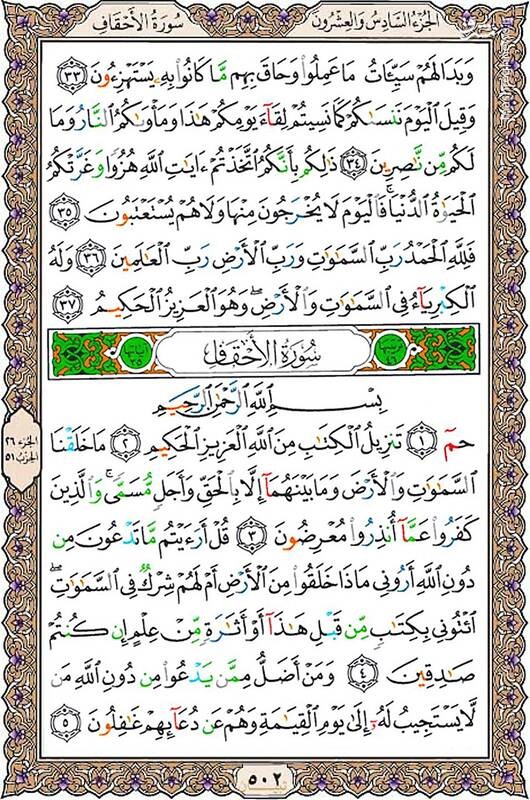 الجزء السادس والعشرون
سورة الأحقاف
وَبَدَا لَهُمْ سَيِّـَٔاتُ مَا عَمِلُوا۟ وَحَاقَ بِهِم مَّا كَانُوا۟ بِهِۦ يَسْتَهْزِءُونَ ٣٣
وَقِيلَ ٱلْيَوْمَ نَنسَىٰكُمْ كَمَا نَسِيتُمْ لِقَآءَ يَوْمِكُمْ هَـٰذَا وَمَأْوَىٰكُمُ ٱلنَّارُ وَمَا
لَكُم مِّن نَّـٰصِرِينَ ٣٤ ذَٰلِكُم بِأَنَّكُمُ ٱتَّخَذْتُمْ ءَايَـٰتِ ٱللَّهِ هُزُوًا وَغَرَّتْكُمُ
ٱلْحَيَوٰةُ ٱلدُّنْيَا ۚ فَٱلْيَوْمَ لَا يُخْرَجُونَ مِنْهَا وَلَا هُمْ يُسْتَعْتَبُونَ ٣٥
فَلِلَّهِ ٱلْحَمْدُ رَبِّ ٱلسَّمَـٰوَٰتِ وَرَبِّ ٱلْأَرْضِ رَبِّ ٱلْعَـٰلَمِينَ ٣٦ وَلَهُ
ٱلْكِبْرِيَآءُ فِى ٱلسَّمَـٰوَٰتِ وَٱلْأَرْضِ ۖ وَهُوَ ٱلْعَزِيزُ ٱلْحَكِيمُ ٣٧
سورة الأحقاف
بِسْمِ ٱللَّهِ ٱلرَّحْمَـٰنِ ٱلرَّحِيمِ
حمٓ ١ تَنزِيلُ ٱلْكِتَـٰبِ مِنَ ٱللَّهِ ٱلْعَزِيزِ ٱلْحَكِيمِ ٢ مَا خَلَقْنَا
ٱلسَّمَـٰوَٰتِ وَٱلْأَرْضَ وَمَا بَيْنَهُمَآ إِلَّا بِٱلْحَقِّ وَأَجَلٍ مُّسَمًّى ۚ وَٱلَّذِينَ
كَفَرُوا۟ عَمَّآ أُنذِرُوا۟ مُعْرِضُونَ ٣ قُلْ أَرَءَيْتُم مَّا تَدْعُونَ مِن
دُونِ ٱللَّهِ أَرُونِى مَاذَا خَلَقُوا۟ مِنَ ٱلْأَرْضِ أَمْ لَهُمْ شِرْكٌ فِى ٱلسَّمَـٰوَٰتِ ۖ
ٱئْتُونِى بِكِتَـٰبٍ مِّن قَبْلِ هَـٰذَآ أَوْ أَثَـٰرَةٍ مِّنْ عِلْمٍ إِن كُنتُمْ
صَـٰدِقِينَ ٤ وَمَنْ أَضَلُّ مِمَّن يَدْعُوا۟ مِن دُونِ ٱللَّهِ مَن
لَّا يَسْتَجِيبُ لَهُۥٓ إِلَىٰ يَوْمِ ٱلْقِيَـٰمَةِ وَهُمْ عَن دُعَآئِهِمْ غَـٰفِلُونَ ٥
الجزء ٢٦
الحزب ٥١
٥٠٢